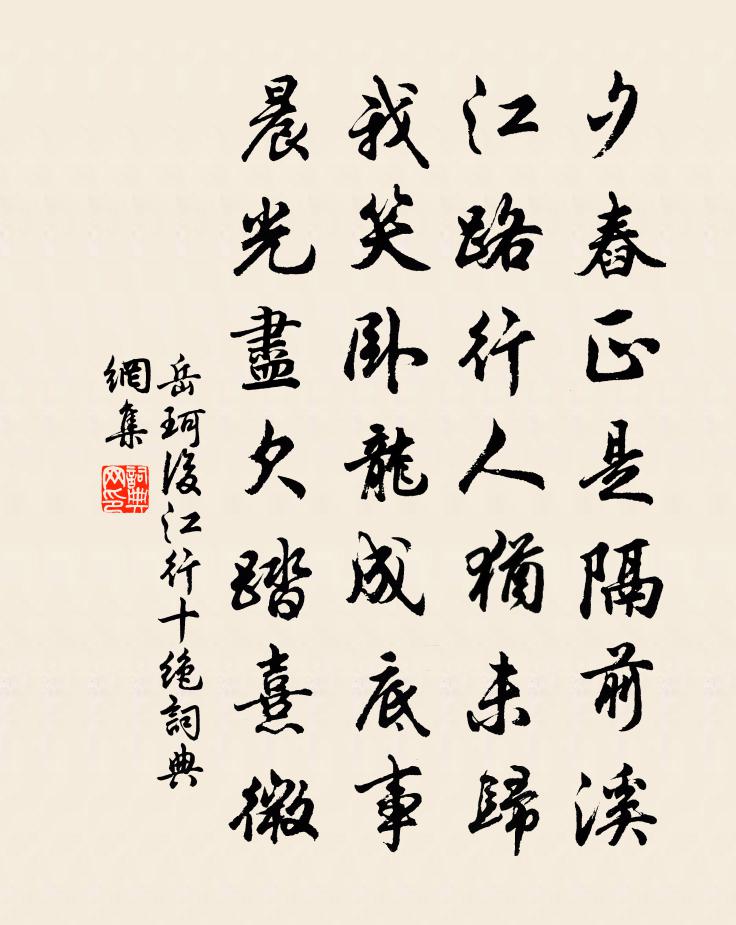 夕舂正是隔前溪
江路行人猶未歸
我笑卧龍成底事
晨光盡欠踏熹微
岳珂後江行十绝詞典
網集
詞典
网印